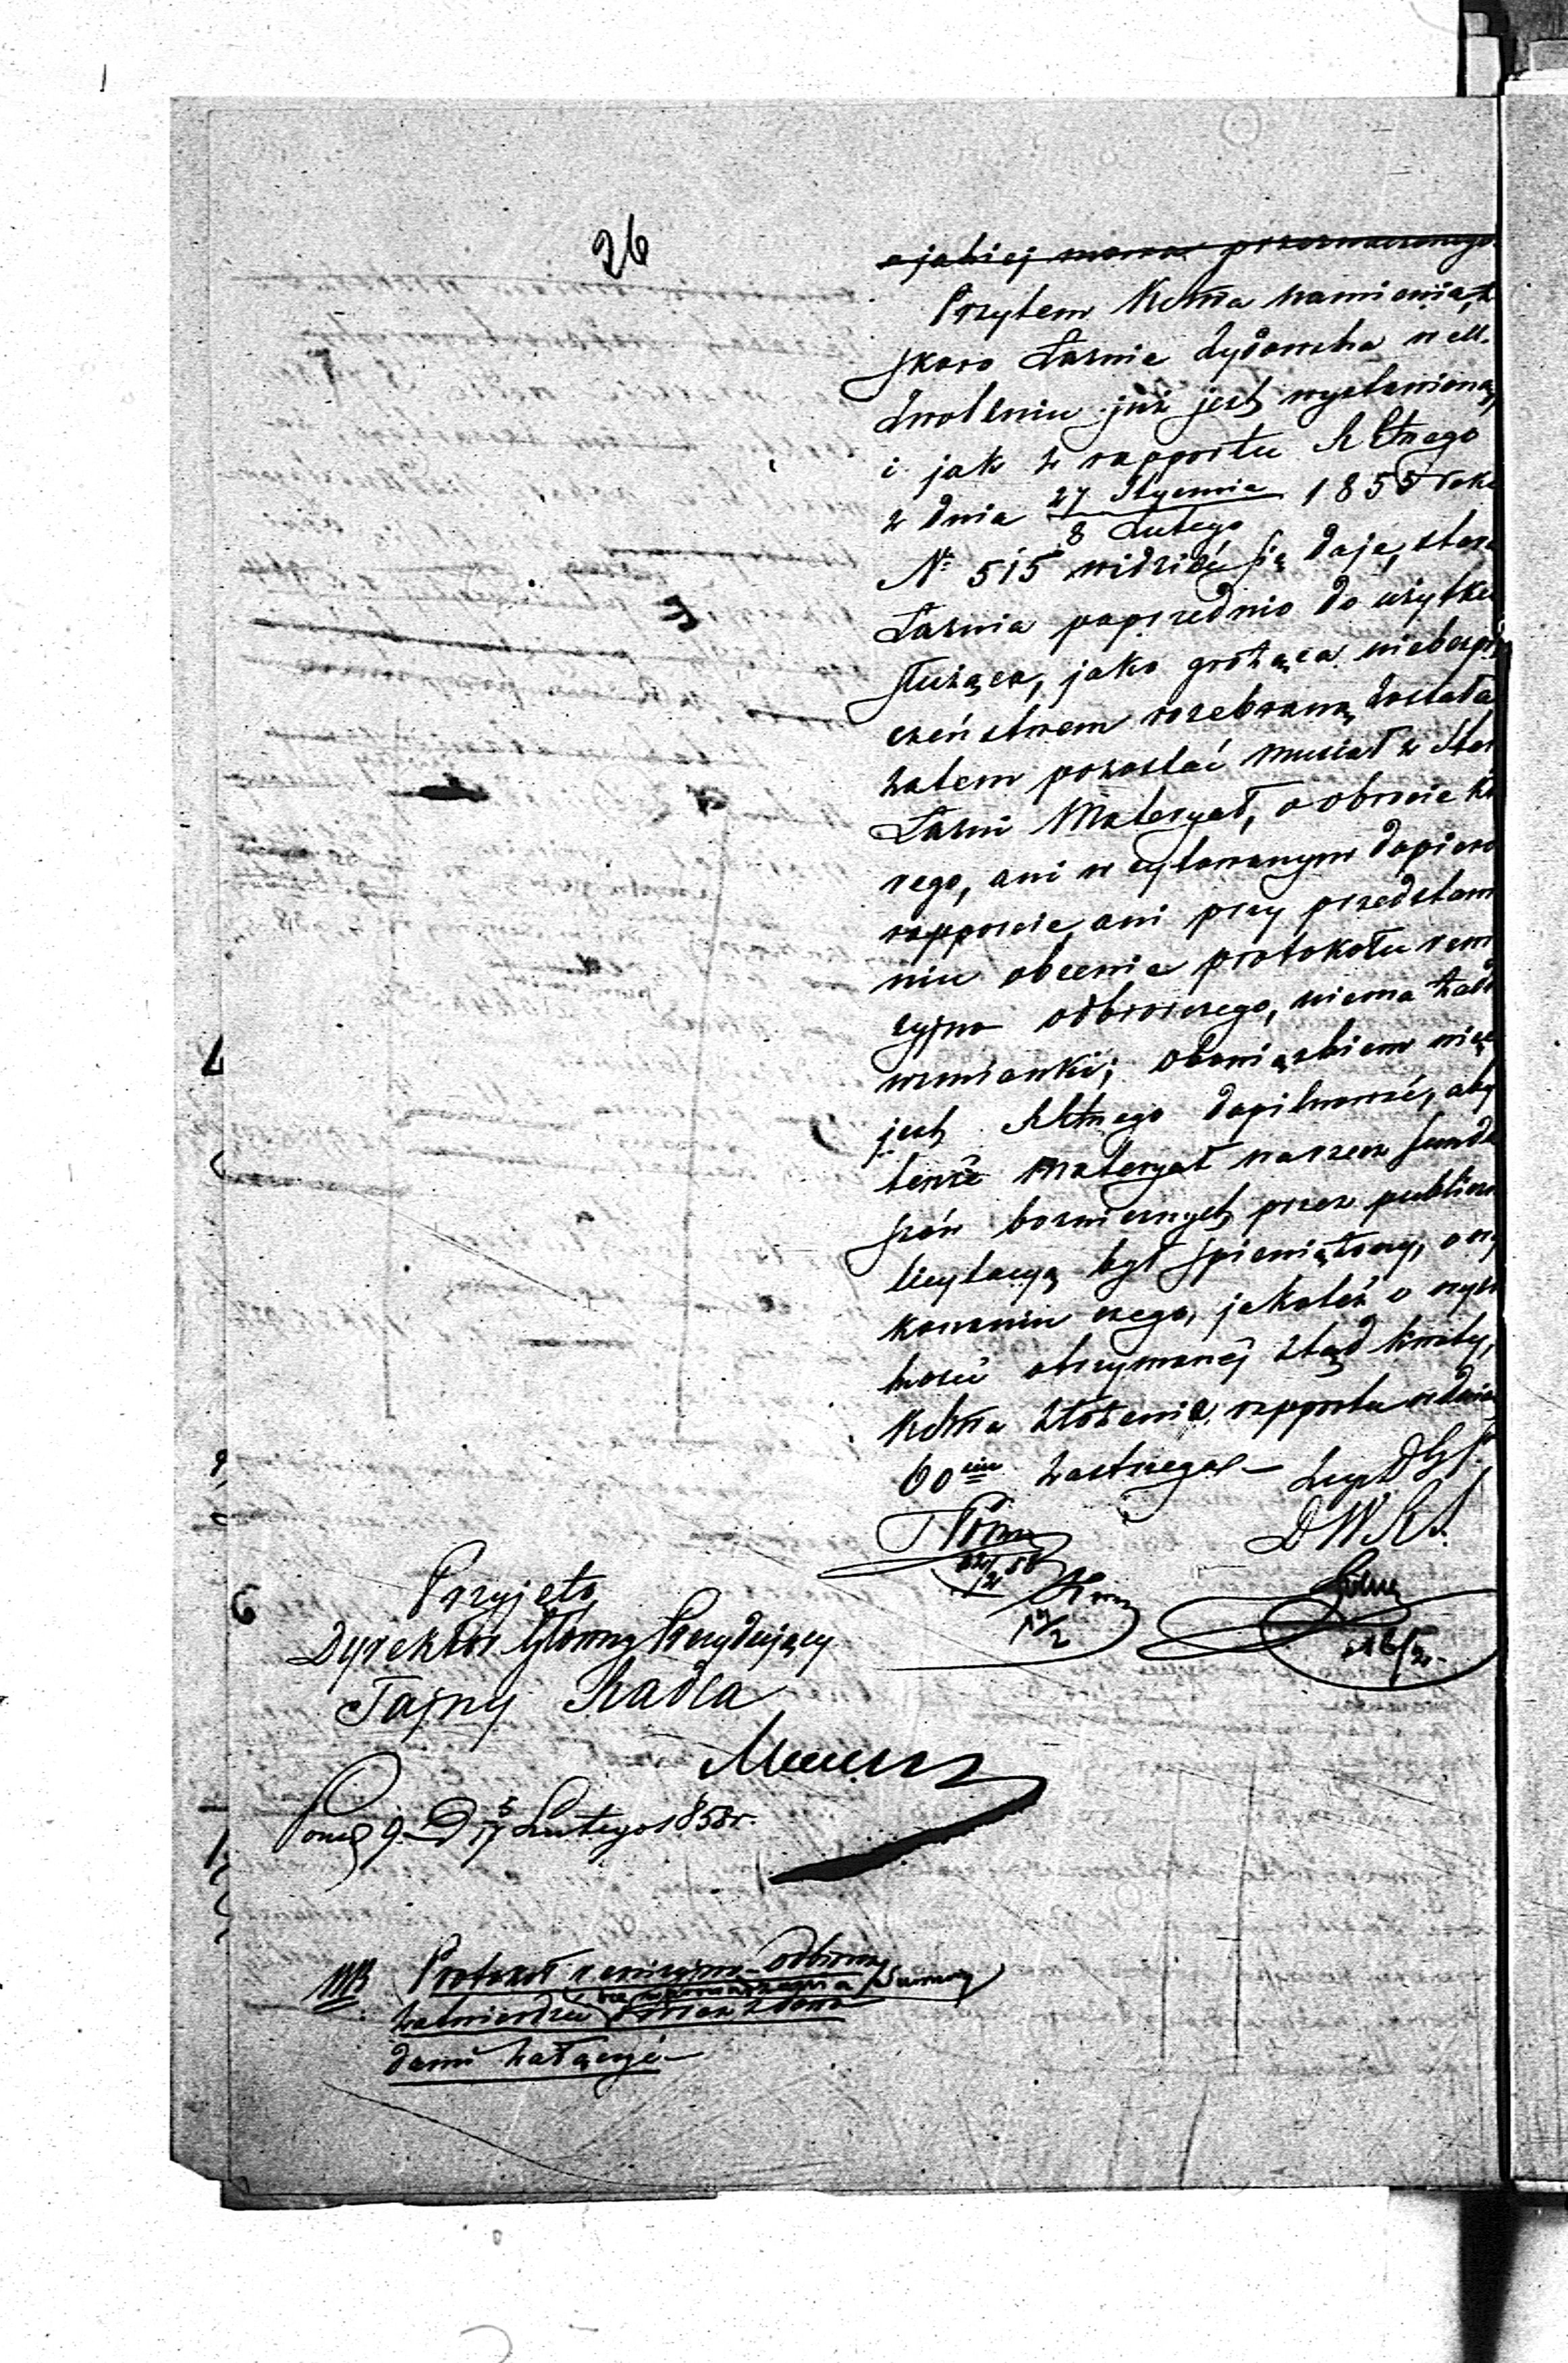 26
o jakiej mowa przeznaczonego
Przytem Kom̄a namienia, że
skoro Łaźnia żydowska w
Zwoleniu już jest wystawioną,
i jak z rapportu Rtnego
z dnia 27 Stycznia / 8 Lutego 1855 roku
N° 515 widzieć się daje, stara
Łaźnia poprzednio do użytku
służąca, jako grożąca niebezpie
czeństwem rozebraną została
zatem pozostać musiał z
Łaźni Materyał, o obrocie któ
rego, ani w cytowanym dopiero
rapporcie, ani przy przedstawie
niu obecnie protokołu rewi
zyjno odbiorczego, niema żadnej
wzmianki; obowiązkiem więc
jest Rtnego dopilnować, aby
tenże materyał na rzecz fundu
szów bozniczych przez publiczną
licytacyą był spieniężony, o wy
konaniu czego, jakoteż o wyso
kości otrzymanej ztąd kwoty,
Kom̄a złożenia rapportu w dniach
60ciu zastrzega —
D W R S.
12/2
16/2
Przyjęto
Dyrektor Główny Prezydujący
Tajny Radca
D 5/17 Lutego 1858 r.
Protokół rewizyjno-odbiorczy
zatwierdzić
załączyć —